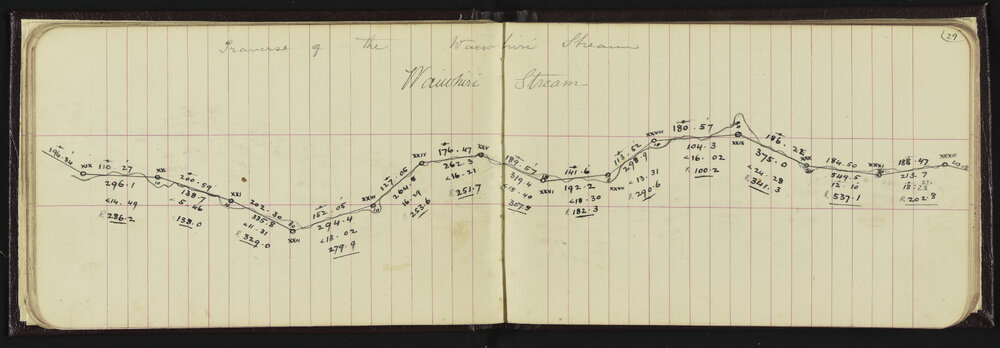 29
Traverse of the Waiwhiri Stream
Waiwhiri Stream
196.34
XIX
110.27
296.1
<14.49
R 286.2
XX
200.59
138.7
5.46
138.0
XXI
202.30
335.8
<11.31
R 329.0
XXII
152.05
294.4
<18.02
279.9
XXIII
10
127.05
264.1
16.29
253.6
XXIV
176.47
262.3
<16.21
R 251.7
XXV
189.57
319.4
<15.40
307.5
XXVI
141.6
192.2
<18.30
R 182.3
XXVII
113.52
298.9
<13.31
R 290.6
XXVIII
180.57
104.3
<16.02
R 100.2
XXIX
186.22
375.0
<24.28
R 341.3
XXX
184.50
549.5
12.10
R 537.1
XXXI
188.47
213.7
18.23
R 202.8
XXXII